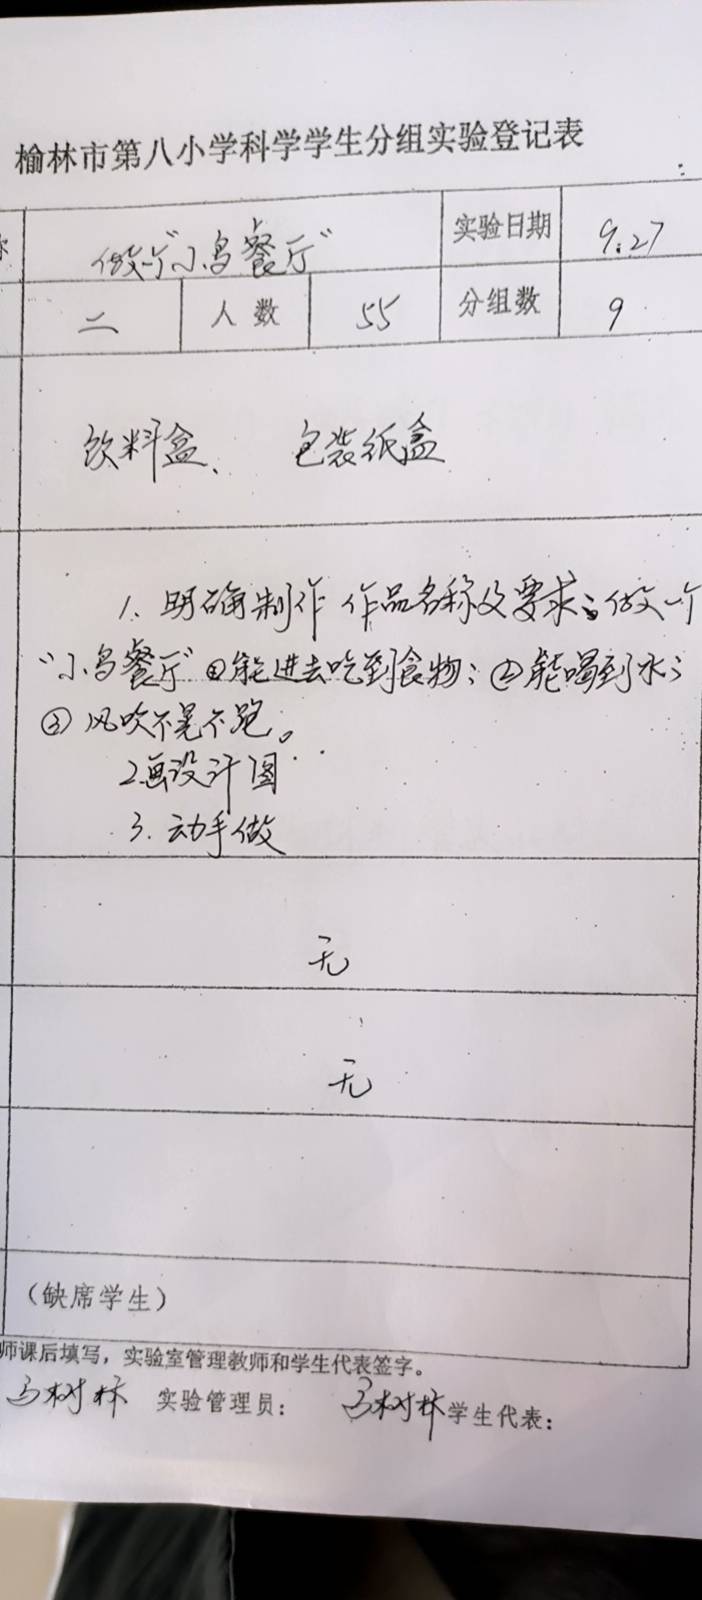 榆林市第八小学科学学生分组实验登记表
做个“小鸟餐厅” 实验日期 9.27
二 人数 55 分组数 9
饮料盒、 包装纸盒
1. 明确制作作品名称及要求：做一个
“小鸟餐厅”①能进去吃到食物；②能喝到水；
③风吹不晃不跑。
2.画设计图
3.动手做
无
无
（缺席学生）
师课后填写，实验室管理教师和学生代表签字。
马树林 实验管理员： 马树林 学生代表：